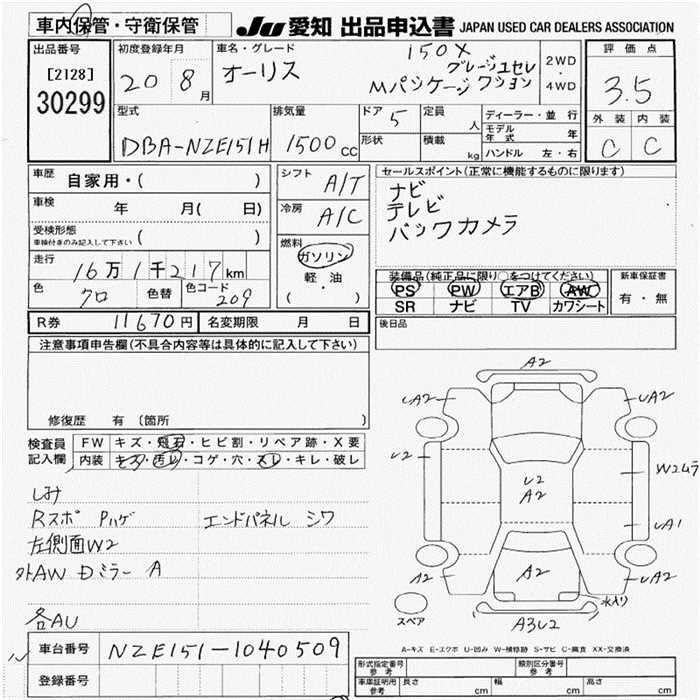 車内保管・守衛保管
JU 愛知 出品申込書 JAPAN USED CAR DEALERS ASSOCIATION
出品番号
[2128]
30299
初度登録年月
20 8月
車名・グレード
オーリス
150X
Mパッケージ
2WD
・
4WD
評価点
3.5
外装 内装
C C
型式
DBA-NZE151H
排気量
1500cc
ドア 5
形状
定員 人
積載 kg
ディーラー・並行
モデル年式 年
ハンドル 左・右
車歴 自家用・( )
車検 年 月( 日)
受検形態
車検付きのみ記入して下さい ( )
走行 16万1千217km
色 クロ 色替 色コード 209
シフト A/T
冷房 A/C
燃料
ガソリン
・
軽・油
( )
セールスポイント(正常に機能するものに限ります)
ナビ
テレビ
バックカメラ
装備品(純正品に限り○をつけてください)
PS PW エアB AW
SR ナビ TV カワシート
新車保証書
有・無
R券 11670円 名変期限 月 日
後日品
注意事項申告欄(不具合内容等は具体的に記入して下さい)
修復歴 有 〔箇所 〕
検査員記入欄
FW キズ・飛石・ヒビ割・リペア跡・X要
内装 キズ・汚レ・コゲ・穴・スレ・キレ・破レ
しみ
Rスポ Pハゲ エンドパネル シワ
左側面W2
外AW Dミラー A
各AU
A2
UA2 UA2
U2 U2 A2 W2ムラ
UA1
A2 A2 UA2
水入り
スペア
A3U2
A-キズ E-エクボ U-凹み W-補修跡 S-サビ C-腐食 XX-交換済
車台番号 NZE151-1040509
登録番号
形式指定番号 参考
類別区分番号 参考
車庫証明用 参考 長さ cm 幅 cm 高さ cm